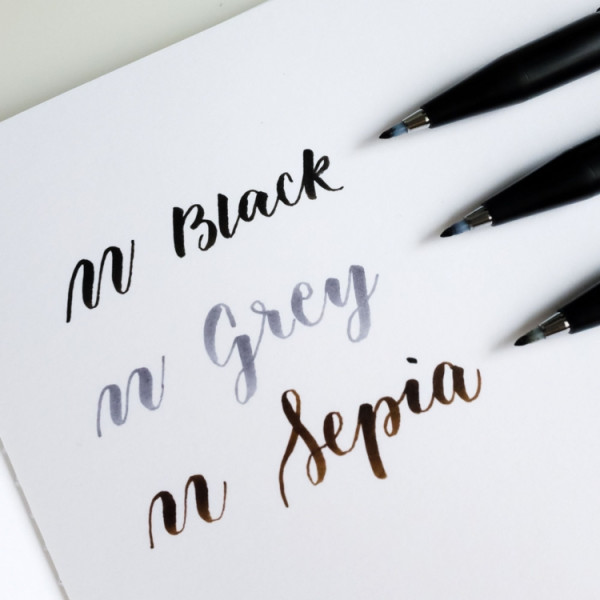 Black
Grey
Sepia